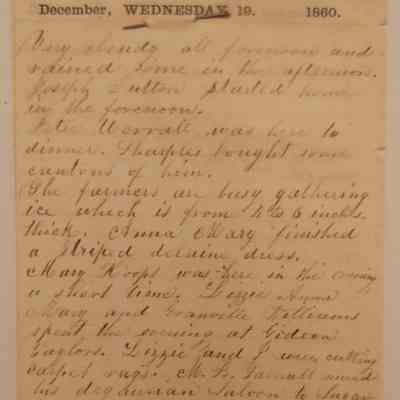 December, WEDNESDAY, 19. 1860.
Very cloudy all forenoon and
rained some in the afternoon.
Joseph Dutton started home
in the forenoon.
Peter Worrall was here to
dinner. Sharples bought some
of him.
The farmers are busy gathering
ice which is from 4 to 6 inches
thick. Anna Mary finished
a striped delaine dress.
Mary Hoops was here in the evening
a short time. Lizzie Anna
Mary and Granville Williams
spent the evening at Gideon
Taylors. Lizzie and I were cutting
carpet rags. M. B.
his Saloon to